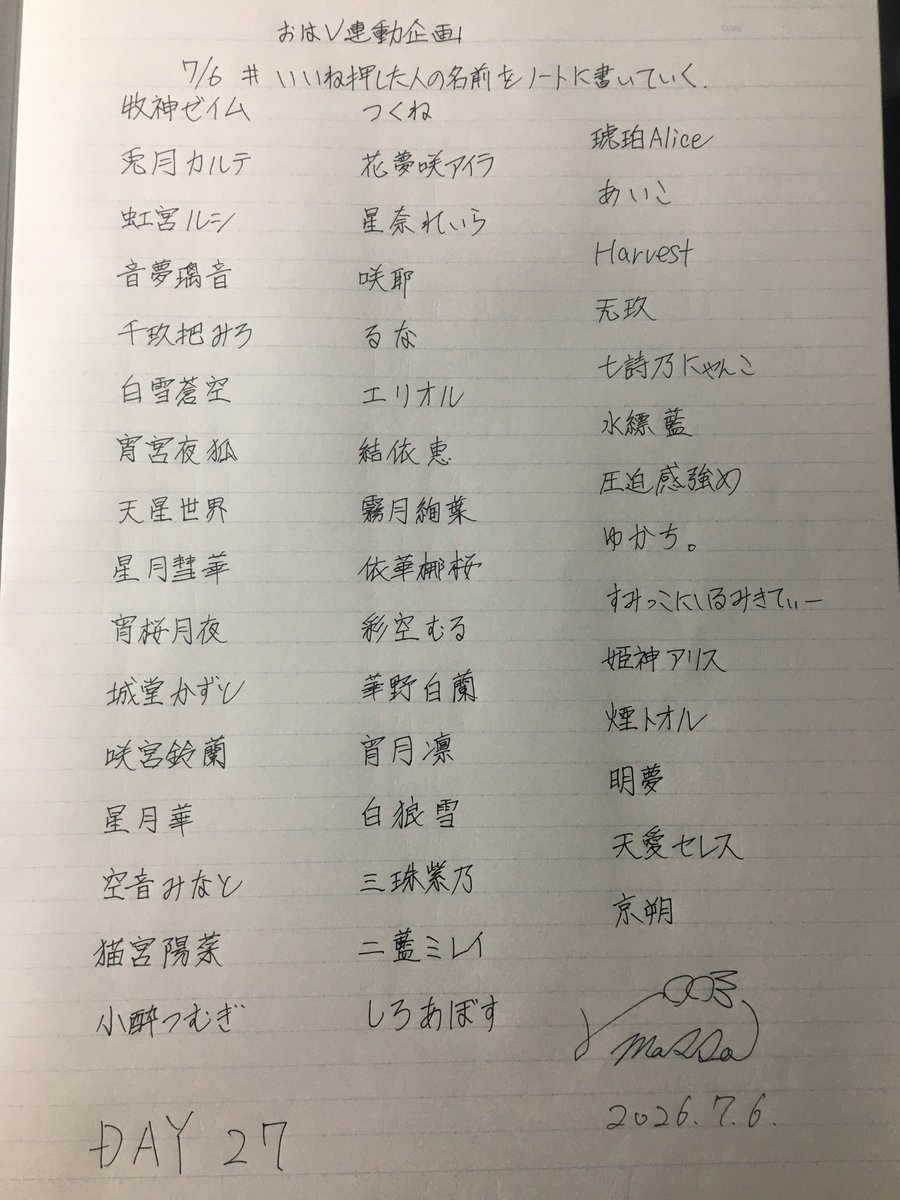 おはV連動企画
7/6 # いいね押した人の名前をノートに書いていく.
牧神ゼイム
兎月カルテ
虹宮ルシ
音夢璃音
千玖把みろ
白雪蒼空
宵宮夜狐
天星世界
星月彗華
宵桜月夜
城堂かずと
咲宮鈴蘭
星月華
空音みなと
猫宮陽菜
小酔つむぎ
つくね
花夢咲アイラ
星奈れいら
咲耶
るな
エリオル
結依恵
霧月絢葉
依華梛桜
彩空むる
華野白蘭
宵月凛
白狼雪
三珠紫乃
二藍ミレイ
しろあぽす
琥珀Alice
あいこ
Harvest
无玖
七詩乃にゃんこ
水縹藍
圧迫感強め
ゆかち。
すみっこにいるみきてぃー
姫神アリス
煙トオル
明夢
天愛セレス
京朔
2026.7.6.
DAY 27